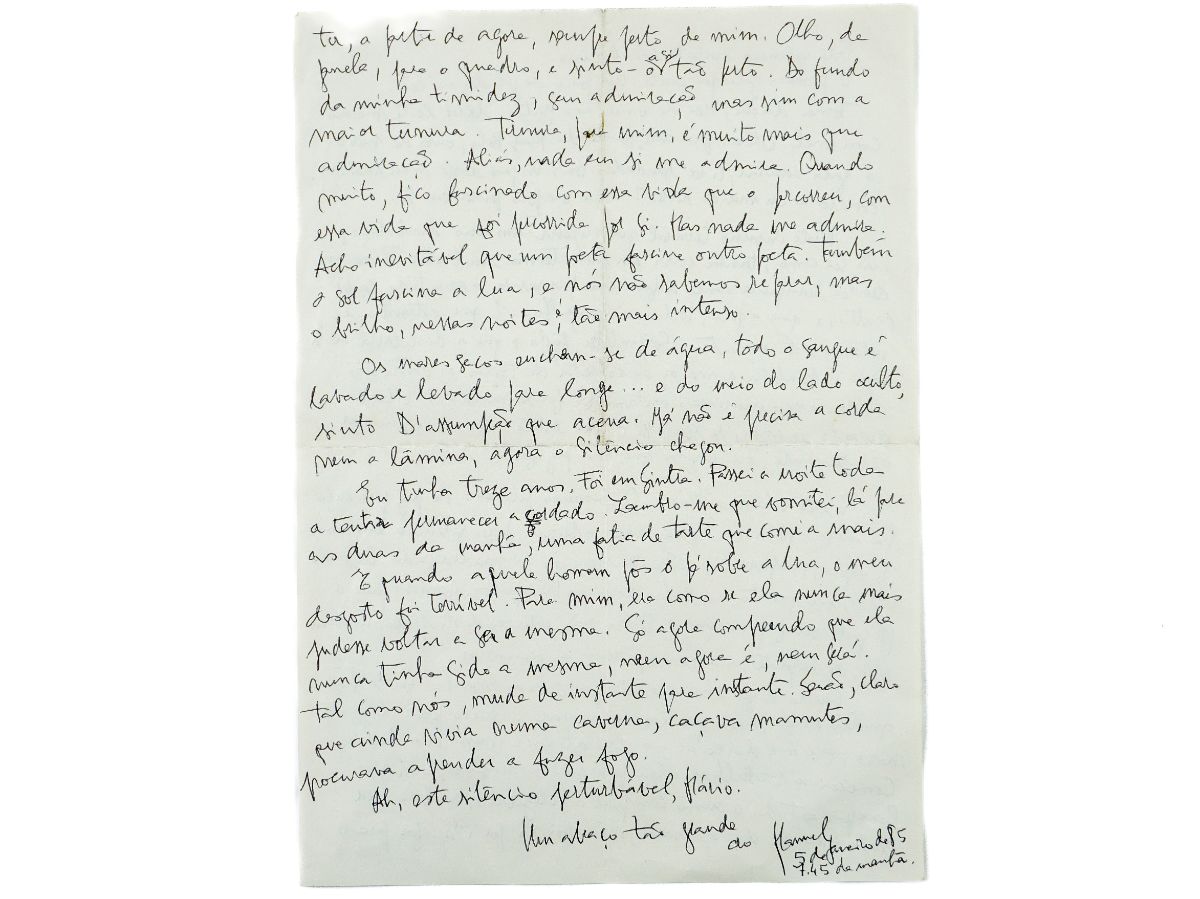 ta, a partir de agora, sempre perto de mim. Olho, da
janela, para o quadro, e sinto-o a si tão perto. Do fundo
da minha timidez, sem admiração mas sim com a
maior ternura. Ternura, para mim, é muito mais que
admiração. Aliás, nada em si me admira. Quando
muito, fico fascinado com essa vida que o percorreu, com
essa vida que foi percorrida por si. Mas nada me admira.
Acho inevitável que um poeta fascine outro poeta. Também
o sol fascina a lua, e nós não sabemos reparar, mas
o brilho, nessas noites, é tão mais intenso.
Os mares secos enchem-se de água, todo o sangue é
lavado e levado para longe... e do meio do lado oculto,
sinto D'Assumpção que acena. Já não é precisa a corda
nem a lâmina, agora o silêncio chegou.
Eu tinha treze anos. Foi em Sintra. Passei a noite toda
a tentar permanecer acordado. Lembro-me que vomitei, lá para
as duas da manhã, uma fatia de tarte que comi a mais.
E quando aquele homem pôs o pé sobre a lua, o meu
desgosto foi terrível. Para mim, era como se ela nunca mais
pudesse voltar a ser a mesma. Só agora compreendo que ela
nunca tinha sido a mesma, nem agora é, nem será.
tal como nós, muda de instante para instante. Senão, claro
que ainda vivia numa caverna, caçava mamutes,
procurava aprender a fazer fogo.
Ah, este silêncio perturbável, Flávio.
Um abraço tão grande
do Manuel
5 de Janeiro de 85
7.45 da manhã.